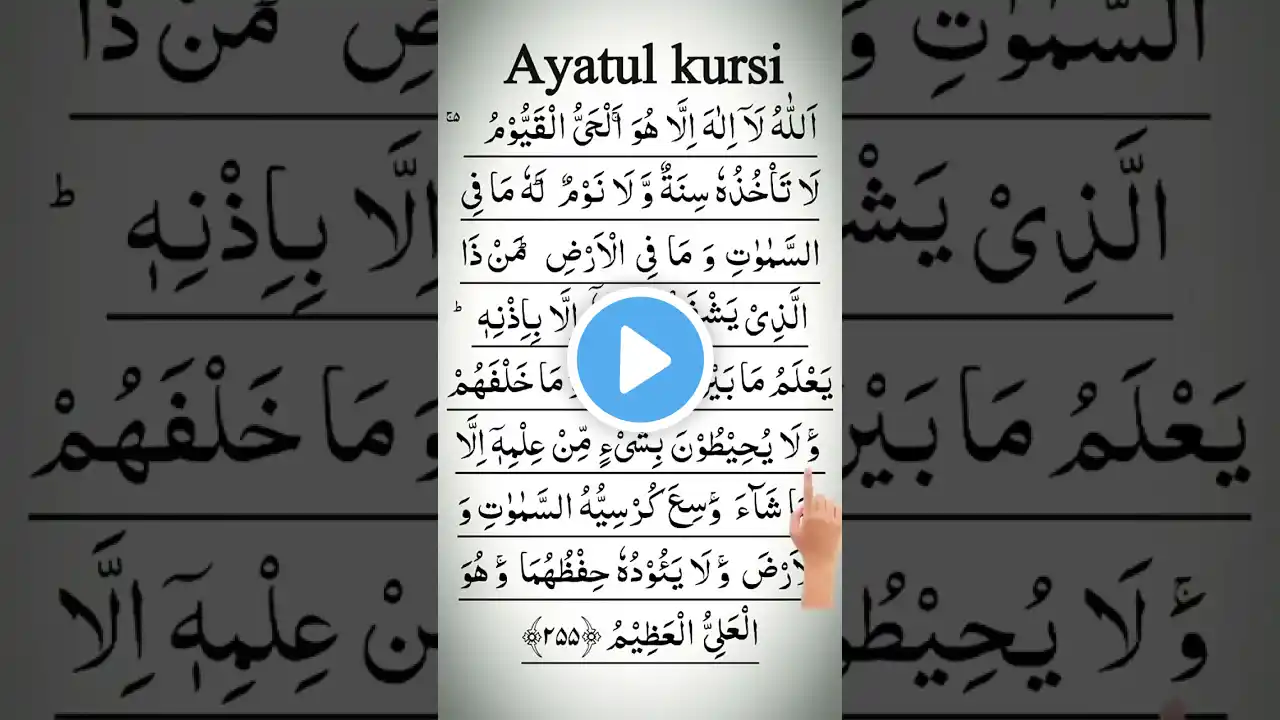 Ayatul kursi
اَللّٰهُ لَاۤ اِلٰهَ اِلَّا هُوَ ۚ اَلْحَیُّ الْقَیُّوْمُ ۚ۬
لَا تَاْخُذُهٗ سِنَةٌ وَّ لَا نَوْمٌ ؕ لَهٗ مَا فِی
السَّمٰوٰتِ وَ مَا فِی الْاَرْضِ ؕ مَنْ ذَا
الَّذِیْ اِلَّا بِاِذْنِهٖ ؕ
یَعْلَمُ مَا مَا خَلْفَهُمْ
وَ ۚ لَا یُحِیْطُوْنَ بِشَیْءٍ مِّنْ عِلْمِهٖۤ اِلَّا
شَآءَ ۚ وَسِعَ كُرْسِیُّهُ السَّمٰوٰتِ وَ
وَ ۚ لَا یَـُٔوْدُهٗ حِفْظُهُمَا ۚ وَ هُوَ
الْعَلِیُّ الْعَظِیْمُ ﴿۲۵۵﴾